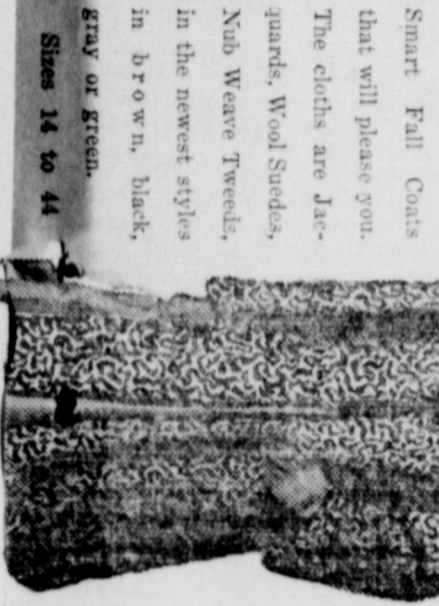 Smart Fall Coats
that will please you.
The cloths are Jac-
quards, Wool Suedes,
Nub Weave Tweeds,
in the newest styles
in brown, black,
gray or green.
Sizes 14 to 44